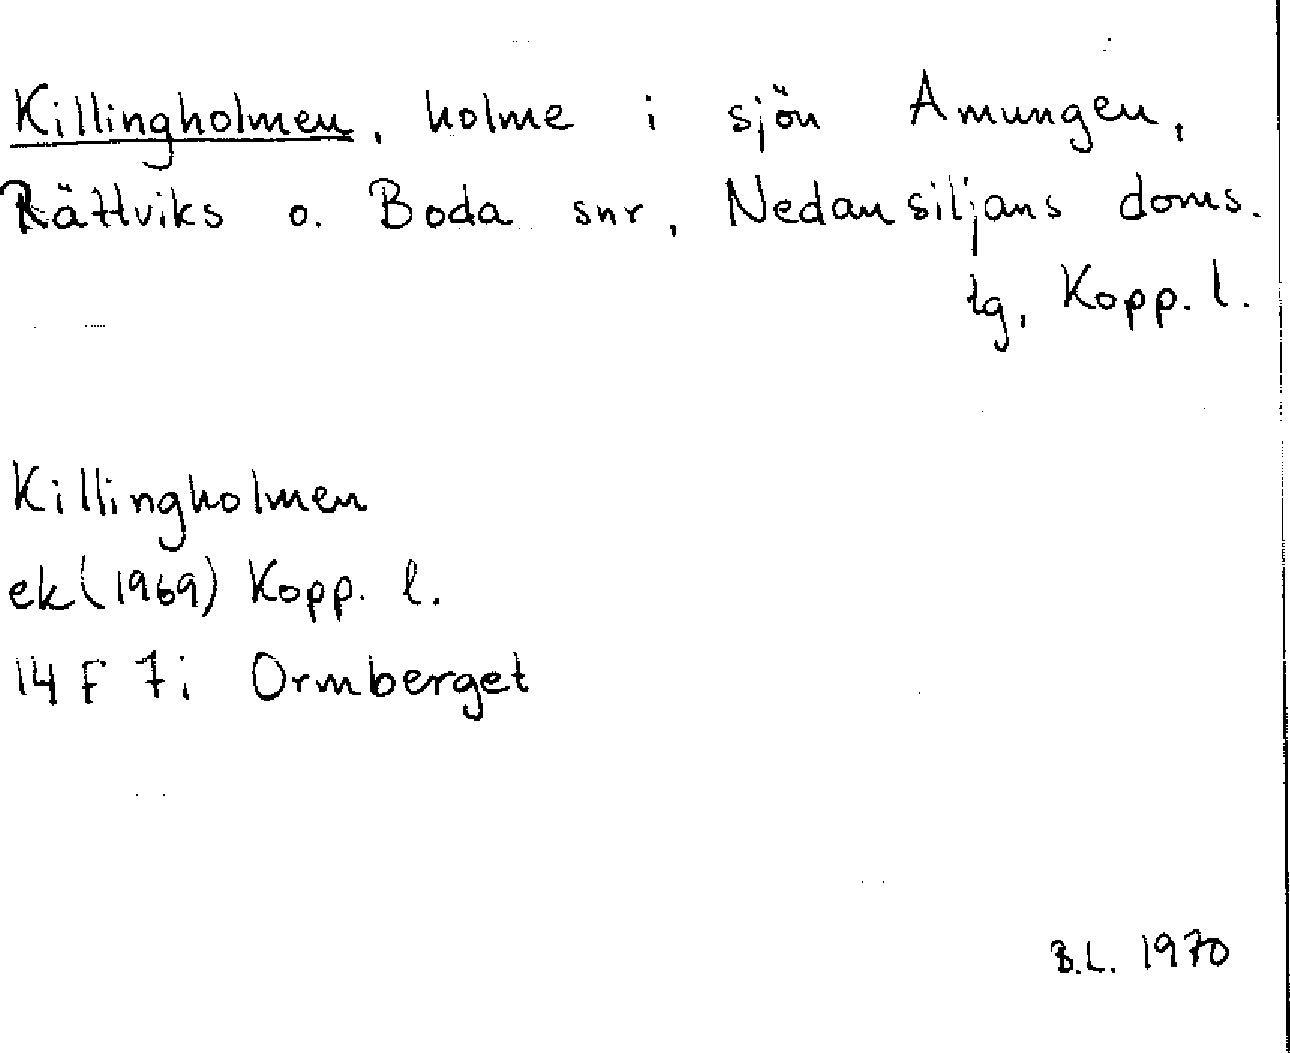 Killingholmen, holme i sjön Amungen,
Rättviks o. Boda snr, Nedansiljans doms.
lg, Kopp. l.
Killingholmen
ek (1969) Kopp. l.
14 F 7i Ormberget
B.L. 1970